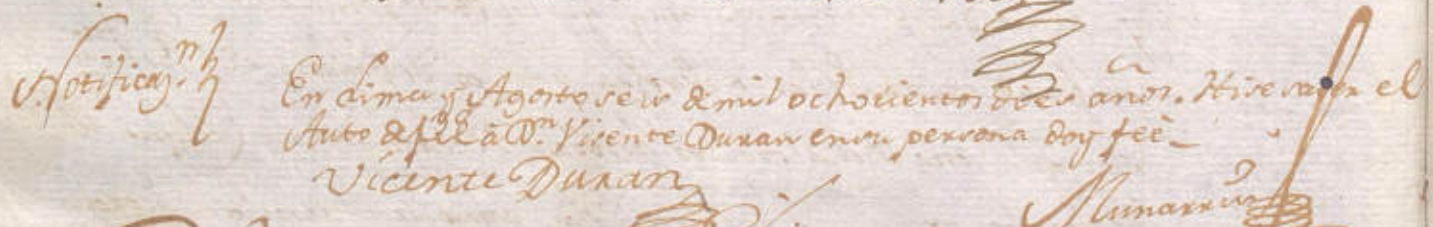 Notificaz.n
En Lima y Agosto seis de mil ochocientos dies años. Hise saver el
Auto de a Dn. Vicente Duran en su persona doy feè
Vicente Duran